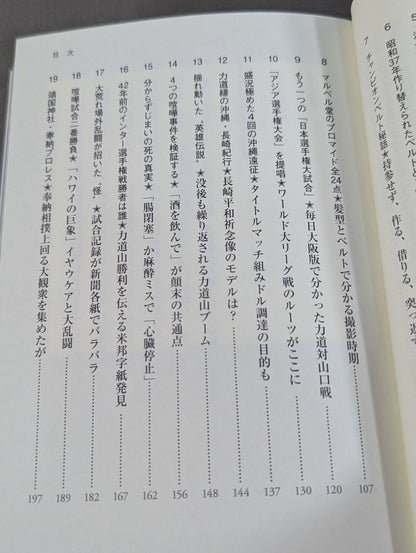 5
6 昭和37年作り替えられたベルトと、
7 チャンピオンベルト秘話★持参せず、作る、借りる、突っ返
8 マルベル堂のプロマイド全24点★髪型とベルトで分かる撮影時期 107
9 もう一つの「日本選手権大試合」★毎日大阪版で分かった力道対山口戦 120
10 「アジア選手権大会」を提唱★ワールド大リーグ戦のルーツがここに 130
11 盛況極めた4回の沖縄遠征★タイトルマッチ組みドル調達の目的も 137
12 力道縁の沖縄・長崎紀行★長崎平和祈念像のモデルは? 144
13 揺れ動いた“英雄伝説”★没後も繰り返される力道山ブーム 148
14 4つの喧嘩事件を検証する★「酒を飲んで」が顛末の共通点 156
15 分からずじまいの死の真実★「腸閉塞」か麻酔ミスで「心臓停止」 162
16 42年前のインター選手権戦勝者は誰★力道山勝利を伝える米邦字紙発見 167
17 大荒れ場外乱闘が招いた“怪”★試合記録が新聞各紙でバラバラ 182
18 喧嘩試合二番勝負★「ハワイの巨象」イヤウケアと大乱闘 189
19 靖国神社・奉納プロレス★奉納相撲上回る大観衆を集めたが 197
目 次